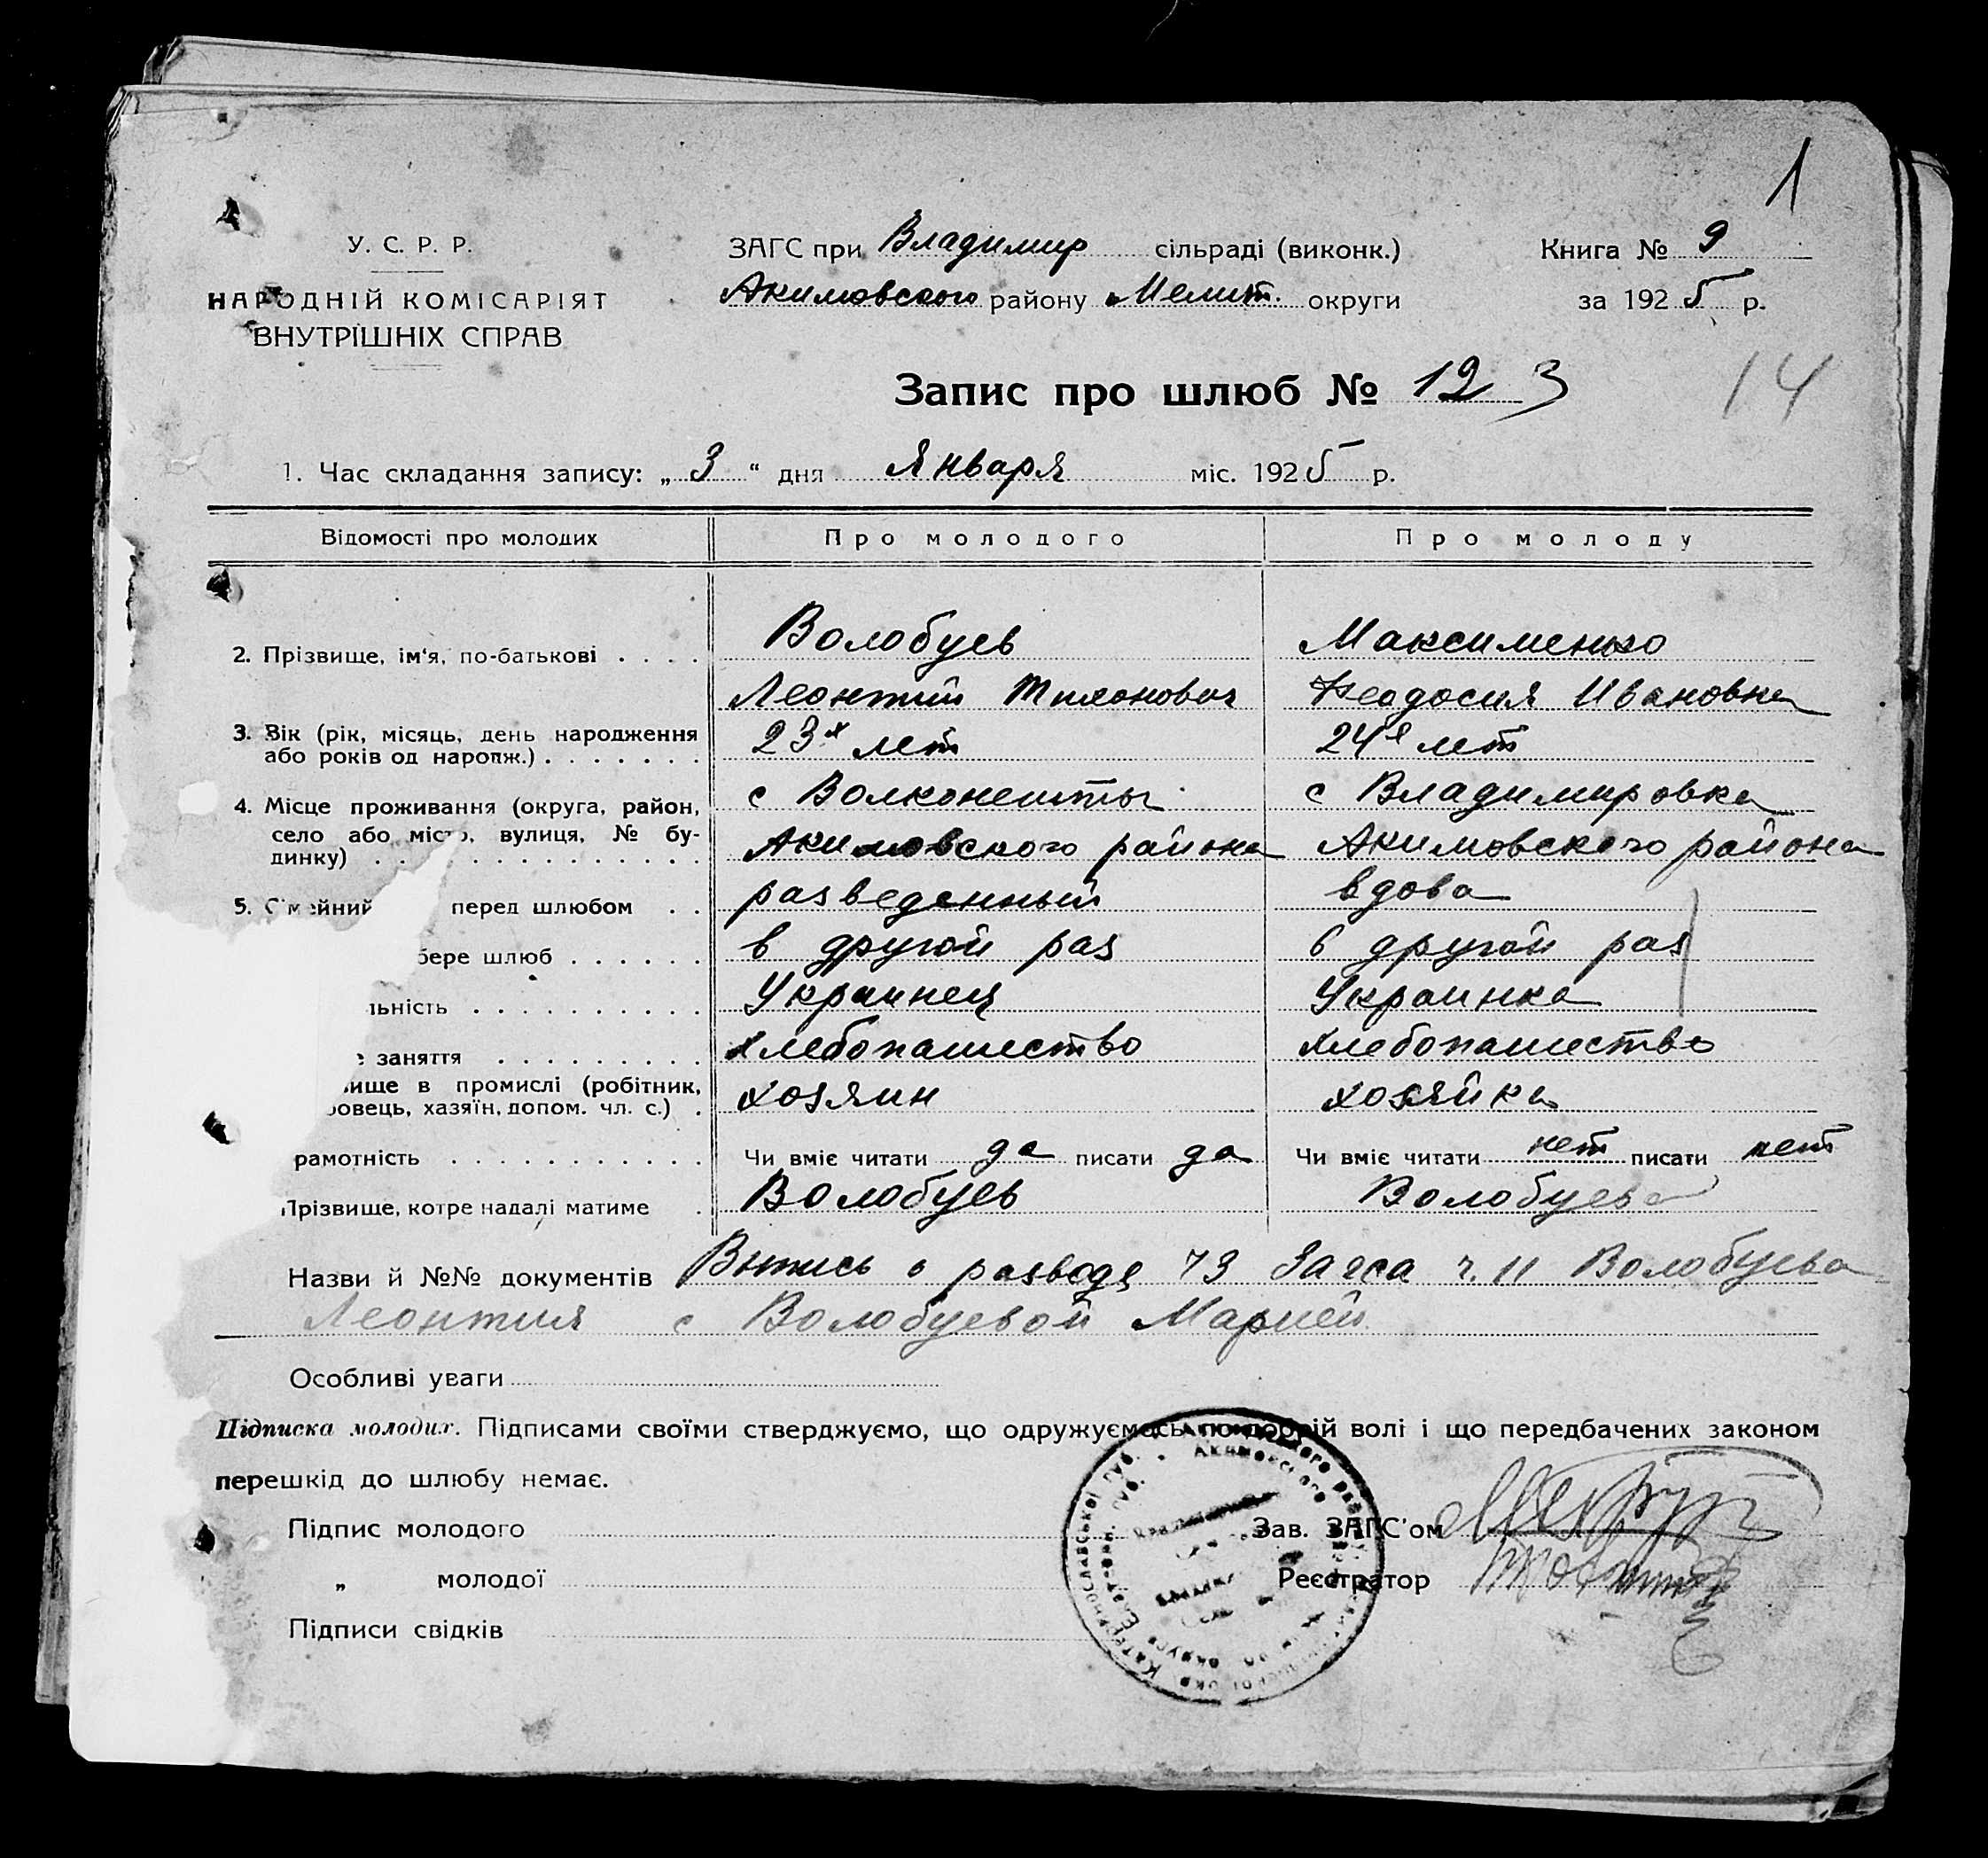 1
У. С. Р. Р.
НАРОДНІЙ КОМІСАРІЯТ
ВНУТРІШНІХ СПРАВ
ЗАГС при Владимир сільраді (виконк.)
Акимовского району Мелит. округи
Книга № 9
за 1925 р.
Запис про шлюб № 12 3
14
1. Час складання запису: „3“ дня Января міс. 1925 р.
Відомості про молодих Про молодого Про молоду
2. Прізвище, ім'я, по-батькові . . . . Волобуев Максименко
Леонтий Тихонович Феодосия Ивановна
3. Вік (рік, місяць, день народження
або років од нарожд.) . . . . . . . 23х лет 24е лет
4. Місце проживання (округа, район, с Волконешты с Владимировка
село або місто, вулиця, № бу-
динку) . . . . . . . . . . . . . . Акимовского района Акимовского района
5. Сімейний перед шлюбом . . разведенный вдова
бере шлюб . . . . . . в другой раз в другой раз
льність . . . . . . . . . . Украинец Украинка
заняття . . . . . . . . . хлебопашество хлебопашество
вище в промислі (робітник,
ровець, хазяїн, допом. чл. с.) . хозяин хозяйка
рамотність . . . . . . . . . . . Чи вміє читати да писати да Чи вміє читати нет писати нет
Прізвище, котре надалі матиме . Волобуев Волобуева
Назви й №№ документів о разводе 73 Загса ч. 11 Волобуева
Леонтия с Волобуевой Марией
Особливі уваги
Підписка молодих. Підписами своїми стверджуємо, що одружуємось по добрій волі і що передбачених законом
перешкід до шлюбу немає.
Підпис молодого Зав. ЗАГС'ом
„ молодої Реєстратор
Підписи свідків